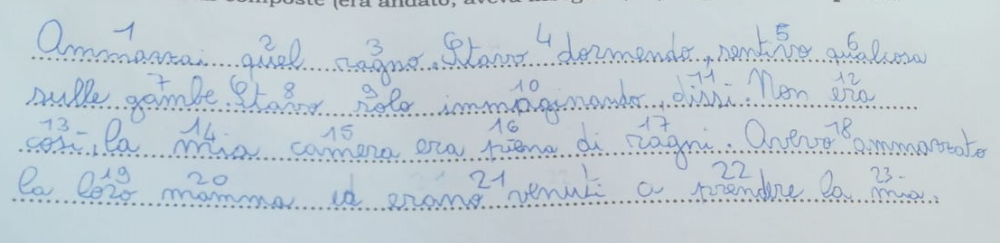 composte (era andato, aveva
Ammazzai quel ragno. Stavo dormendo, sentivo qualcosa
sulle gambe. Stavo solo immaginando, dissi. Non era
così, la mia camera era piena di ragni. Avevo ammazzato
la loro mamma ed erano venuti a prendre la mia.
1 2 3 4 5 6 7 8 9 10 11 12 13 14 15 16 17 18 19 20 21 22 23